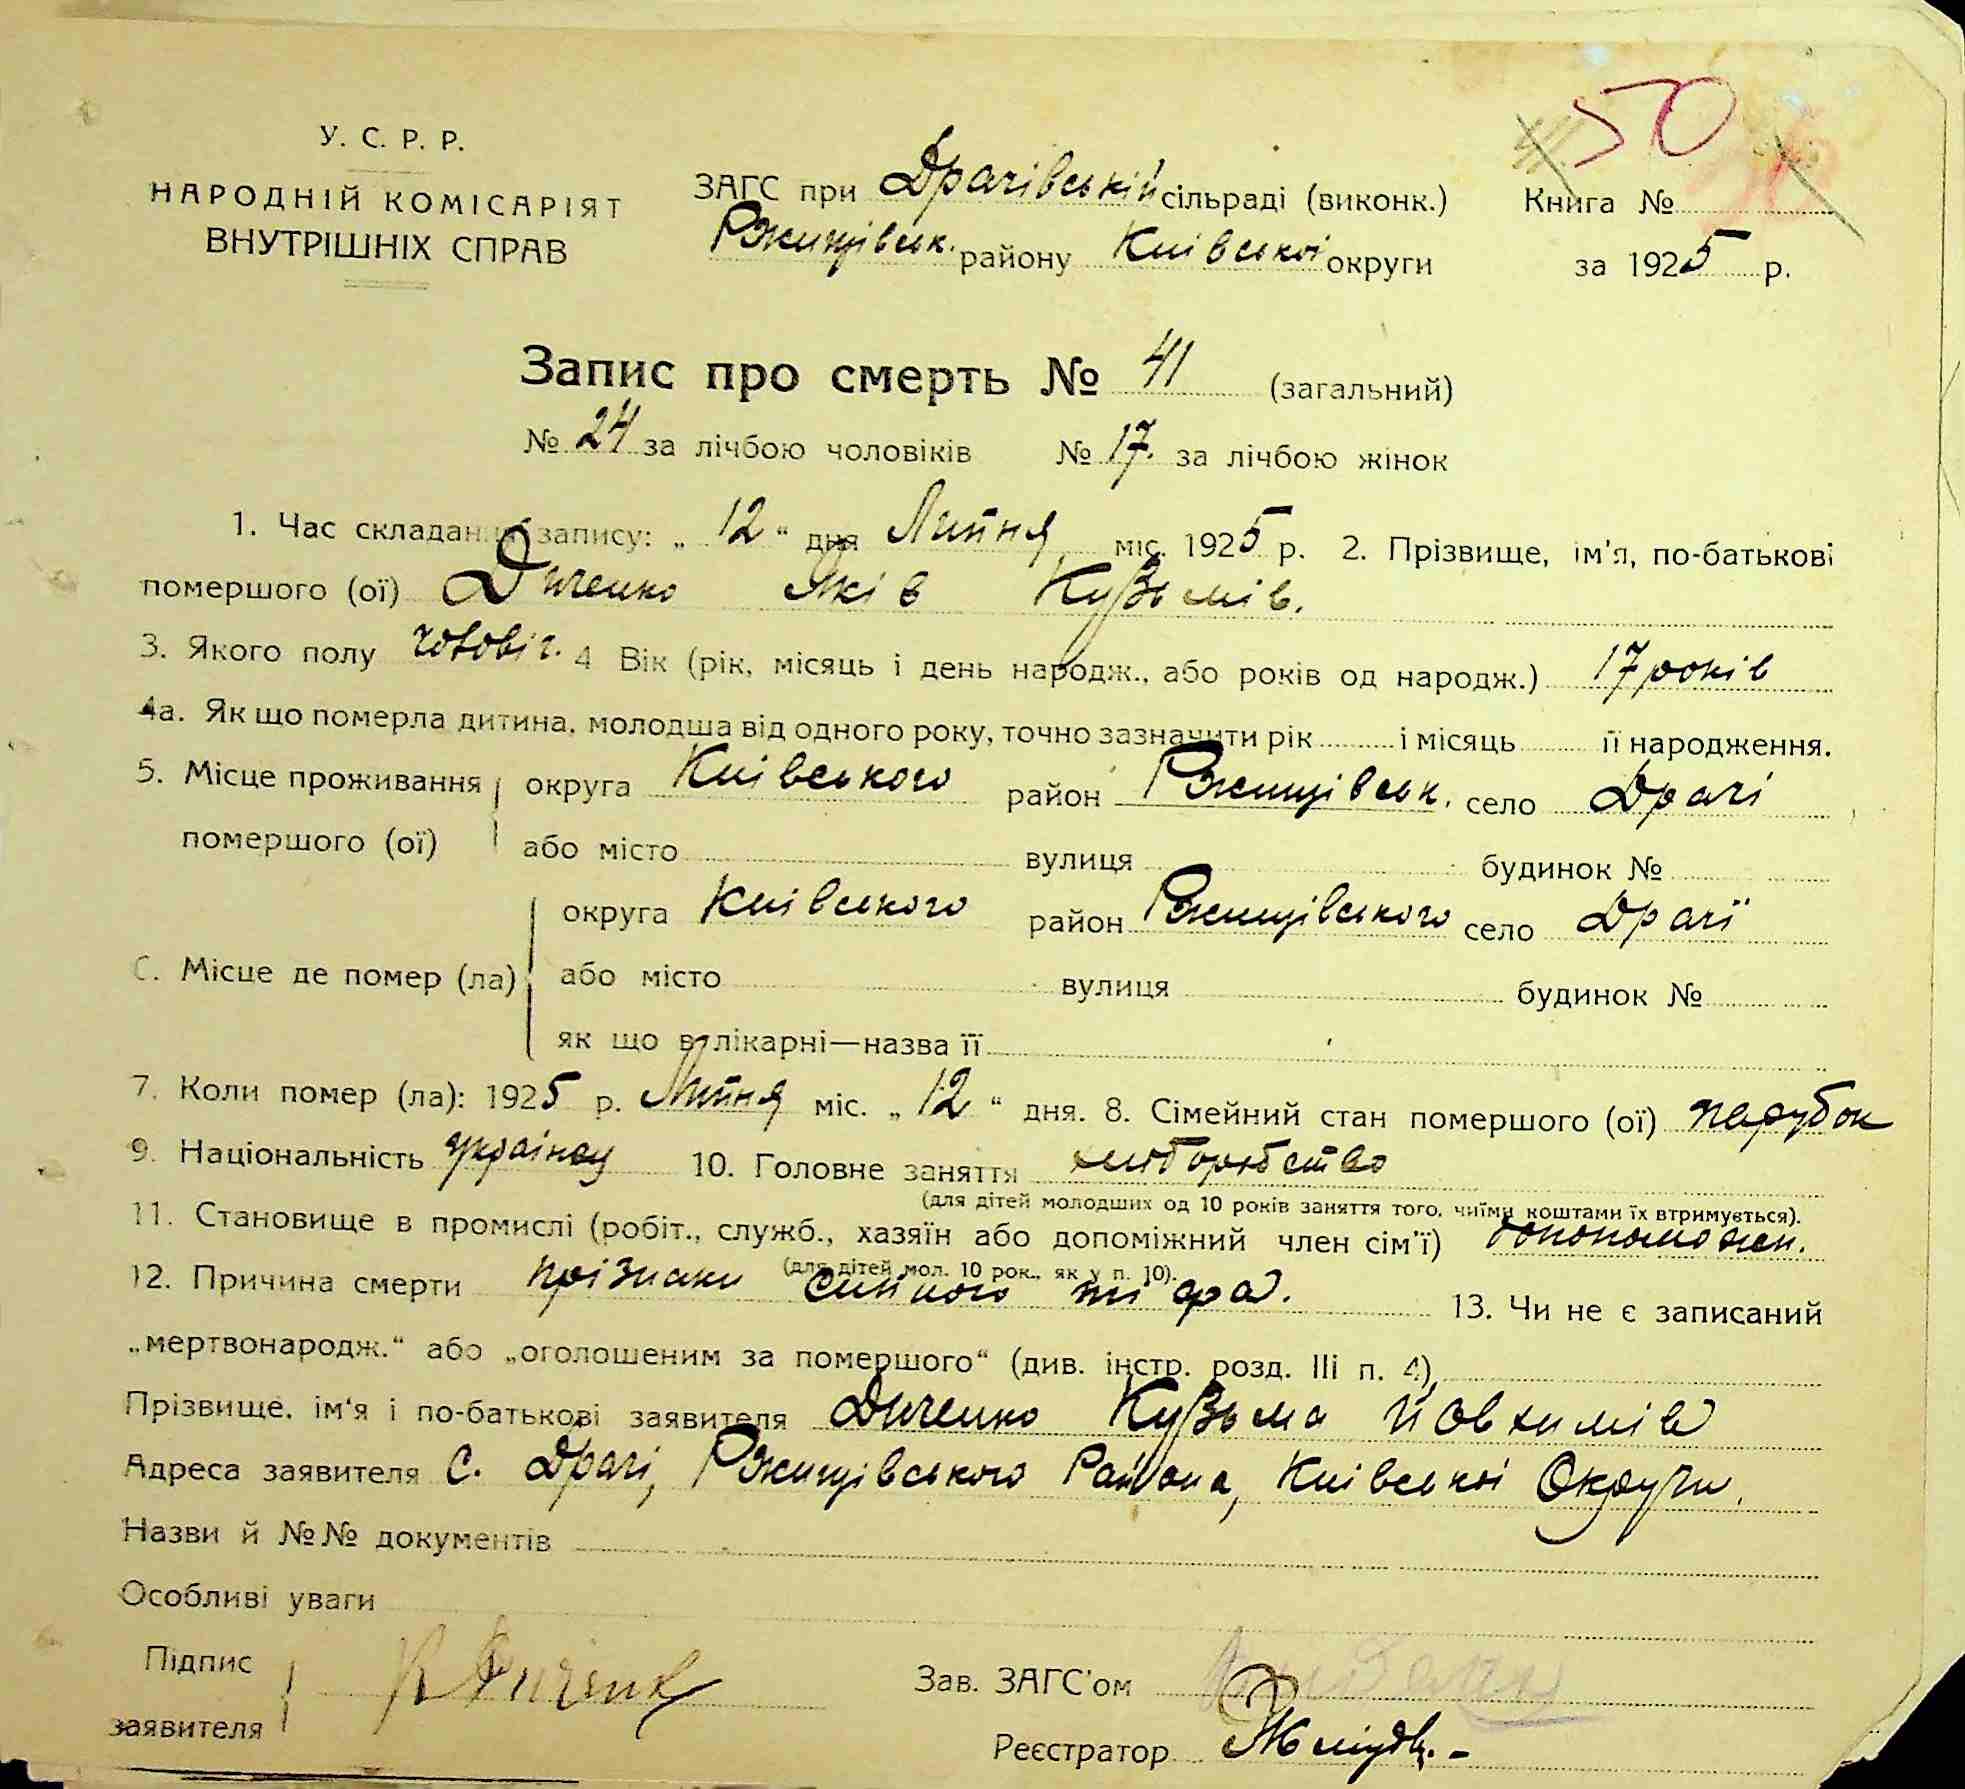 50
У. С. Р. Р.
НАРОДНІЙ КОМІСАРІЯТ
ВНУТРІШНІХ СПРАВ
ЗАГС при Драчівській сільраді (виконк.) Книга №
Ржищівськ. району Київської округи за 1925 р.
Запис про смерть № 41 (загальний)
№ 24 за лічбою чоловіків № 17. за лічбою жінок
1. Час складання запису: „ 12 “ дня Липня міс. 1925 р. 2. Прізвище, ім'я, по-батькові
помершого (ої) Диченко Яків Кузьмів.
3. Якого полу чоловіч. 4 Вік (рік, місяць і день народж., або років од народж.) 17 років
4а. Як що померла дитина, молодша від одного року, точно зазначити рік і місяць її народження.
5. Місце проживання округа Київського район Ржищівськ. село Драчі
помершого (ої) або місто вулиця будинок №
округа Київського район Ржищівського село Драчі
6. Місце де помер (ла) або місто вулиця будинок №
як що в лікарні—назва її
7. Коли помер (ла): 1925 р. Липня міс. „ 12 “ дня. 8. Сімейний стан помершого (ої) парубок
9. Національність 10. Головне заняття хліборобство
(для дітей молодших од 10 років заняття того, чиїми коштами їх втримується).
11. Становище в промислі (робіт., служб., хазяїн або допоміжний член сім'ї)
(для дітей мол. 10 рок., як у п. 10).
12. Причина смерти прізнаки сипного тіфа. 13. Чи не є записаний
„мертвонародж.“ або „оголошеним за помершого“ (див. інстр. розд. III п. 4)
Прізвище, ім'я і по-батькові заявителя Диченко Кузьма Йовхимів
Адреса заявителя С. Драчі, Ржищівського Района, Київської Округи.
Назви й №№ документів
Особливі уваги
Підпис
заявителя
Зав. ЗАГС'ом
Реєстратор